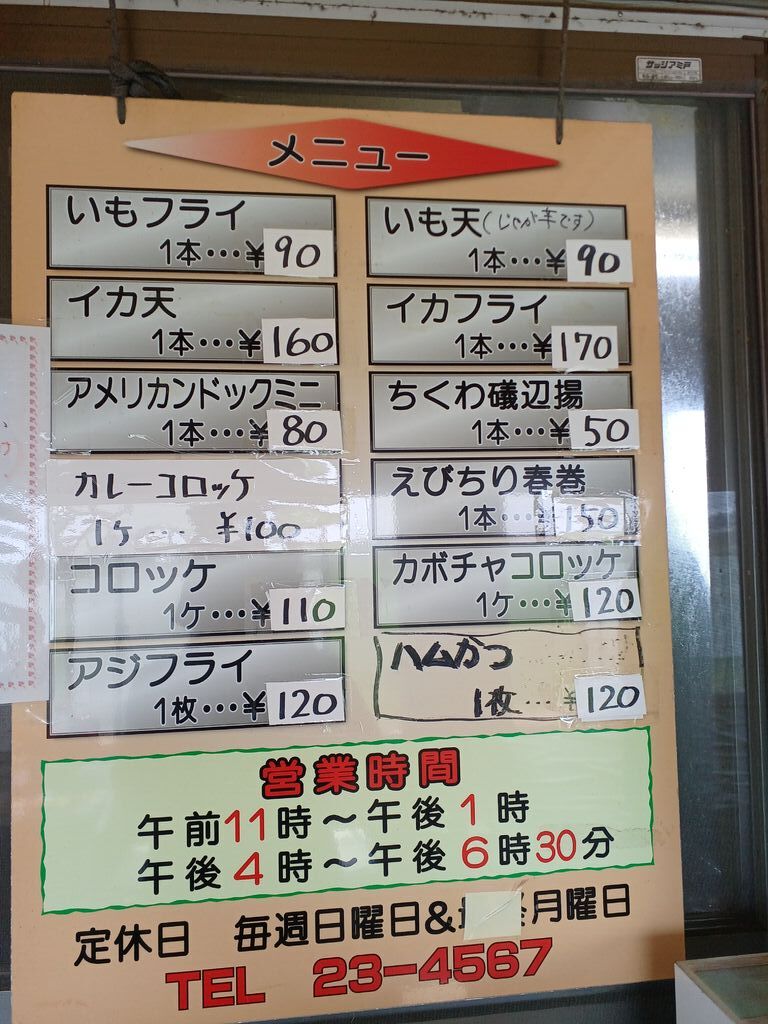 サッシアミ戸
メニュー
いもフライ
1本…¥90
いも天(じゃが芋です)
1本…¥90
イカ天
1本…¥160
イカフライ
1本…¥170
アメリカンドックミニ
1本…¥80
ちくわ磯辺揚
1本…¥50
カレーコロッケ
1ケ… ¥100
えびちり春巻
1本…¥150
コロッケ
1ケ…¥110
カボチャコロッケ
1ケ…¥120
アジフライ
1枚…¥120
ハムかつ
1枚…¥120
営業時間
午前11時～午後1時
午後4時～午後6時30分
定休日 毎週日曜日& 月曜日
TEL 23-4567